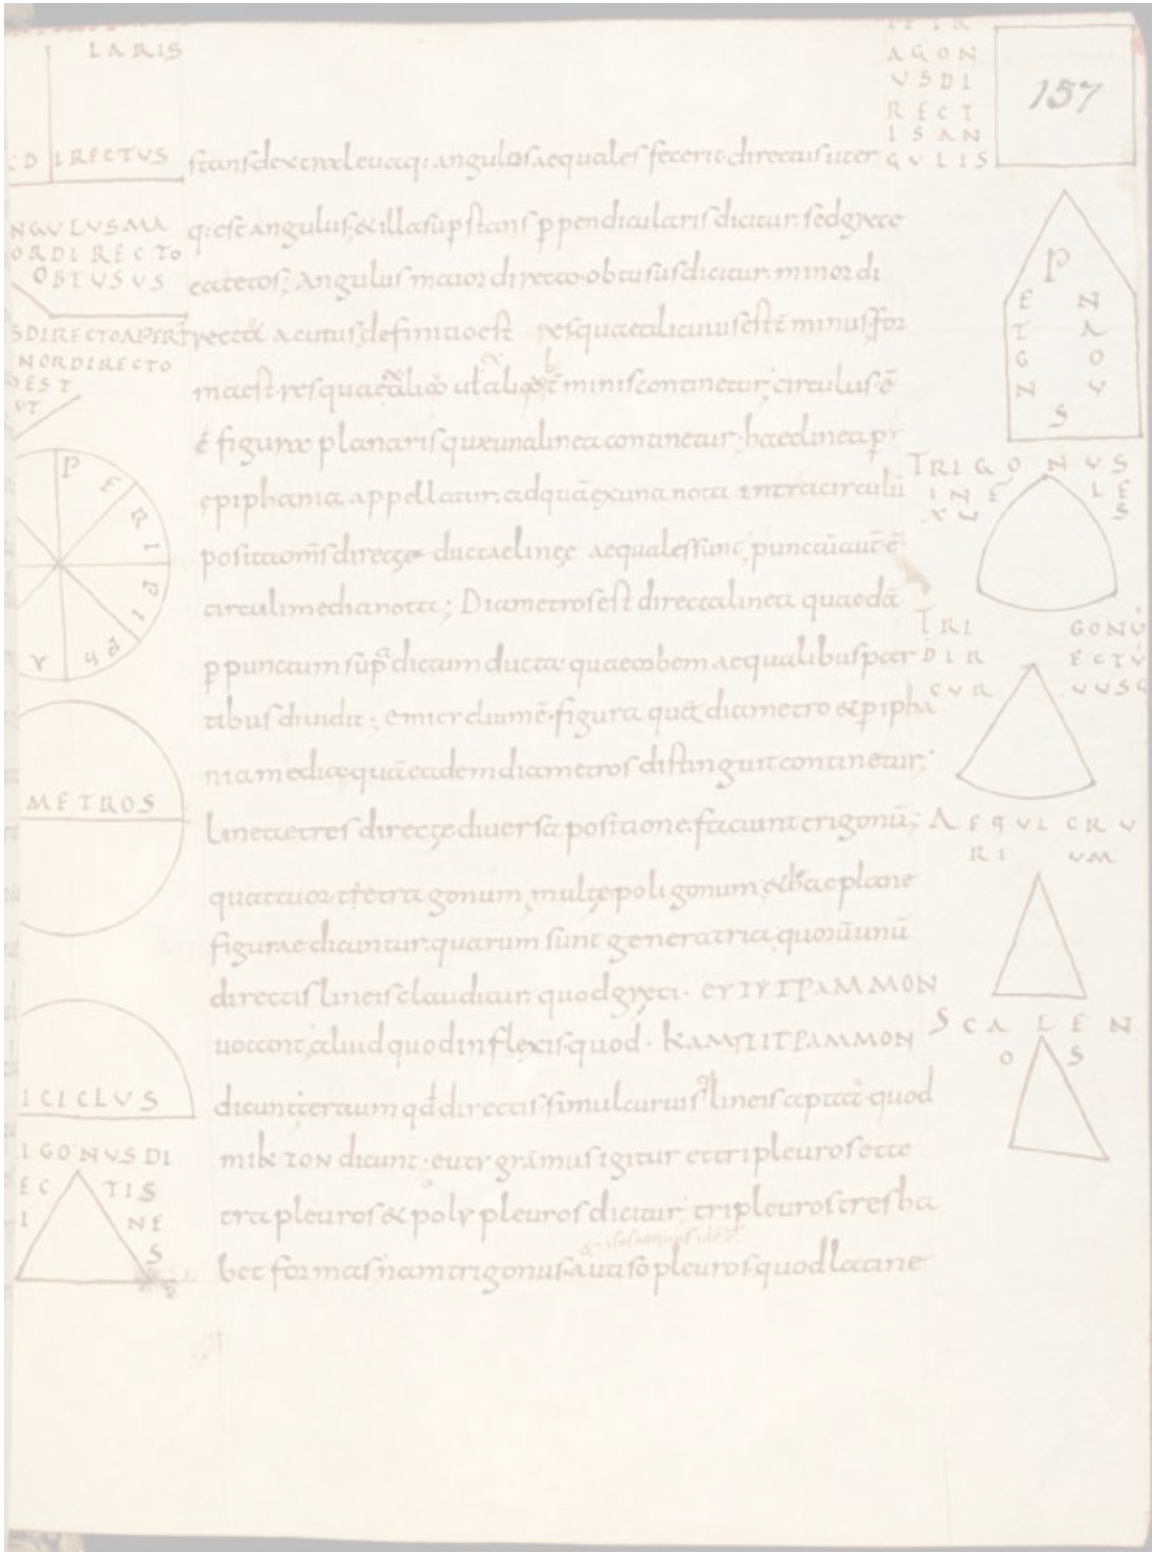 LARIS
DIRECTUS
NGULUSMA
ORDIRECTO
OBTUSUS
SDIRECTOAPERT
NORDIRECTO
EST
UT
PERIPIPHA
METROS
ICICLVS
IGONVSDI
EC TIS
I NE
S
stansdextraleuaq: angulosaequales fecerit directusuter
q: est angulus, &illasupstans ppendicularisdicitur sedgrece
catetos; Angulus maior directo obtususdicitur minor di
recto acutus, definitioest resquaealicuiusestt̄minus, for
maest res quaeāaliq̄o ul aliq̄ t̄minis continetur; circulus ē
ē figura planaris quaeunalinea continetur; haeclinea p
epiphania appellatur: adquāexuna nota intracirculū
positaom̄s directae ductaelineę aequalessunt; punctūaut̄ē
circulimedianota; Diametrosest directalinea quaedā
p punctum sup̄dictum ducta quaeorbem aequalibuspar
tibus diuidit; emicrcliumē figura quae diametro &pipha
niamediaquāeademdiametros distinguitcontinetur;
Lineaetres directę diuersa positione faciunt trigonū;
quattuor tetra gonum, multę poligonum, &haeplane
figurae dicuntur. quarum sunt genera tria, quorūunū
directis lineis clauditur quodgręci · EYTYΓPAMMON
uocant, aliud quodinflexis quod · KAMΠIΓPAMMON
dicunt tertium qd directis simulcuruisq lineis aptat̄ quod
MIKTON dicunt · eutygrāmus igitur ettripleuros ette
trapleuros & poly pleuros dicitur, tripleuros tres ha
bet formas, namtrigonus autisopleuros quodlatine
TETR
AGON
VSDI
RECT
ISAN
GVLIS
157
PENTAGONVS
TRIGONVS
INF LE
XU S
TRI GONV
DIR ECTV
CVR VVSQ
AEQVICRV
RI UM
SCALEN
OS